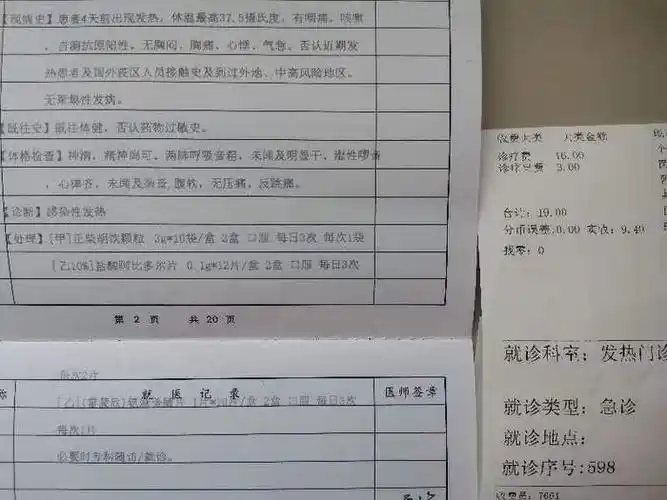 【现病史】患者4天前出现发热,体温最高37.5摄氏度,有咽痛,咳嗽
,自测抗原阳性,无胸闷、胸痛、心悸、气急。否认近期发
热患者及国外疫区人员接触史及到过外地、中高风险地区。
无聚集性发病。
【既往史】既往体健,否认药物过敏史。
【体格检查】神清,精神尚可,两肺呼吸音粗,未闻及明显干、湿性啰音
,心律齐,未闻及杂音,腹软,无压痛,反跳痛。
【诊断】感染性发热
【处理】[甲]正柴胡饮颗粒 3g*10袋/盒 2盒 口服 每日3次 每次1袋
[乙10%]盐酸阿比多尔片 0.1g*12片/盒 2盒 口服 每日3次
第 2 页 共 20 页
每次2片
就医记录 医师签章
2盒 口服 每日3次
必要时专科随访/就诊。
收费大类 大类金额
诊疗费 16.00
3.00
合计: 19.00
分币误差:0.00 实收: 9.49
找零: 0
就诊科室: 发热门诊
就诊类型: 急诊
就诊地点:
就诊序号:598
收费员: 7661